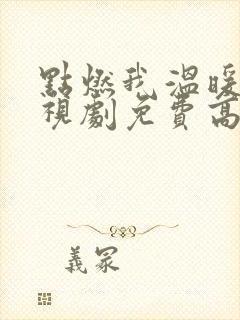 點燃我溫暖
視劇免費高
義冢